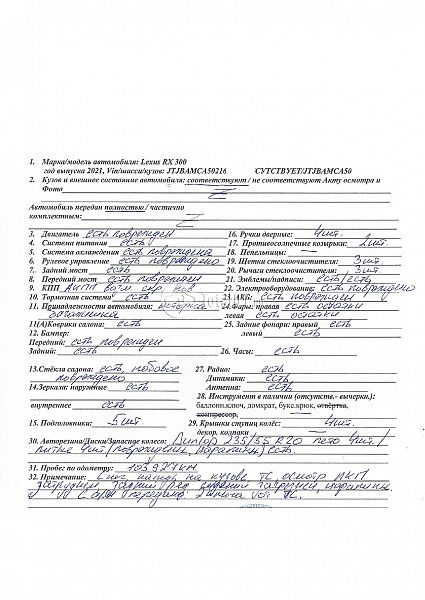 1. Марка/модель автомобиля: Lexus RX 300
год выпуска 2021, Vin/шасси/кузов: JTJBAMCA50216 СУТСТВУЕТ/JTJBAMCA50
2. Кузов и внешнее состояние автомобиля: соответствуют / не соответствуют Акту осмотра и
Фото Z
Автомобиль передан полностью / частично
комплектным: Z
3. Двигатель есть поврежден 16. Ручки дверные: 4шт.
4. Система питания есть 17. Противосолнечные козырьки: 2шт.
5. Система охлаждения есть повреждена 18. Пепельницы: —
6. Рулевое управление есть повреждено 19. Щетки стеклоочистителя: 3шт.
7. Задний мост есть 20. Рычаги стеклоочистителя: 3шт.
8. Передний мост есть поврежден 21. Эмблемы/надписи: есть/есть
9. КПП АКПП 22. Электрооборудование: есть повреждено
10. Тормозная система есть 23. АКБ: есть поврежден
11. Принадлежности автомобиля: шторка 24. Фары: правая есть остатки
багажника левая есть остатки
11(А) Коврики салона: есть 25. Задние фонари: правый есть
12. Бампер: левый есть
Передний: есть поврежден
Задний: есть 26. Часы: есть
13. Стёкла салона: есть, лобовое 27. Радио: есть
повреждено Динамики: есть
14. Зеркала: наружные есть Антенна: есть
28. Инструмент в наличии (отсутств.- вычерка.):
внутреннее есть баллонн.ключ, домкрат, букс.крюк, отвёртка,
компрессор,
15. Подголовники: 5шт 29. Крышки ступиц колёс: 4шт.
декор. колпаки —
30. Авторезина/Диски/Запасное колесо: Dunlop 235/55 R20 лето 4шт./
литые 4шт/повреждены, царапины/есть.
31. Пробег по одометру: 103977км
32. Примечание: на кузове ТС, осмотр ЛКП
затруднен, задний ряд сидений
ТС.